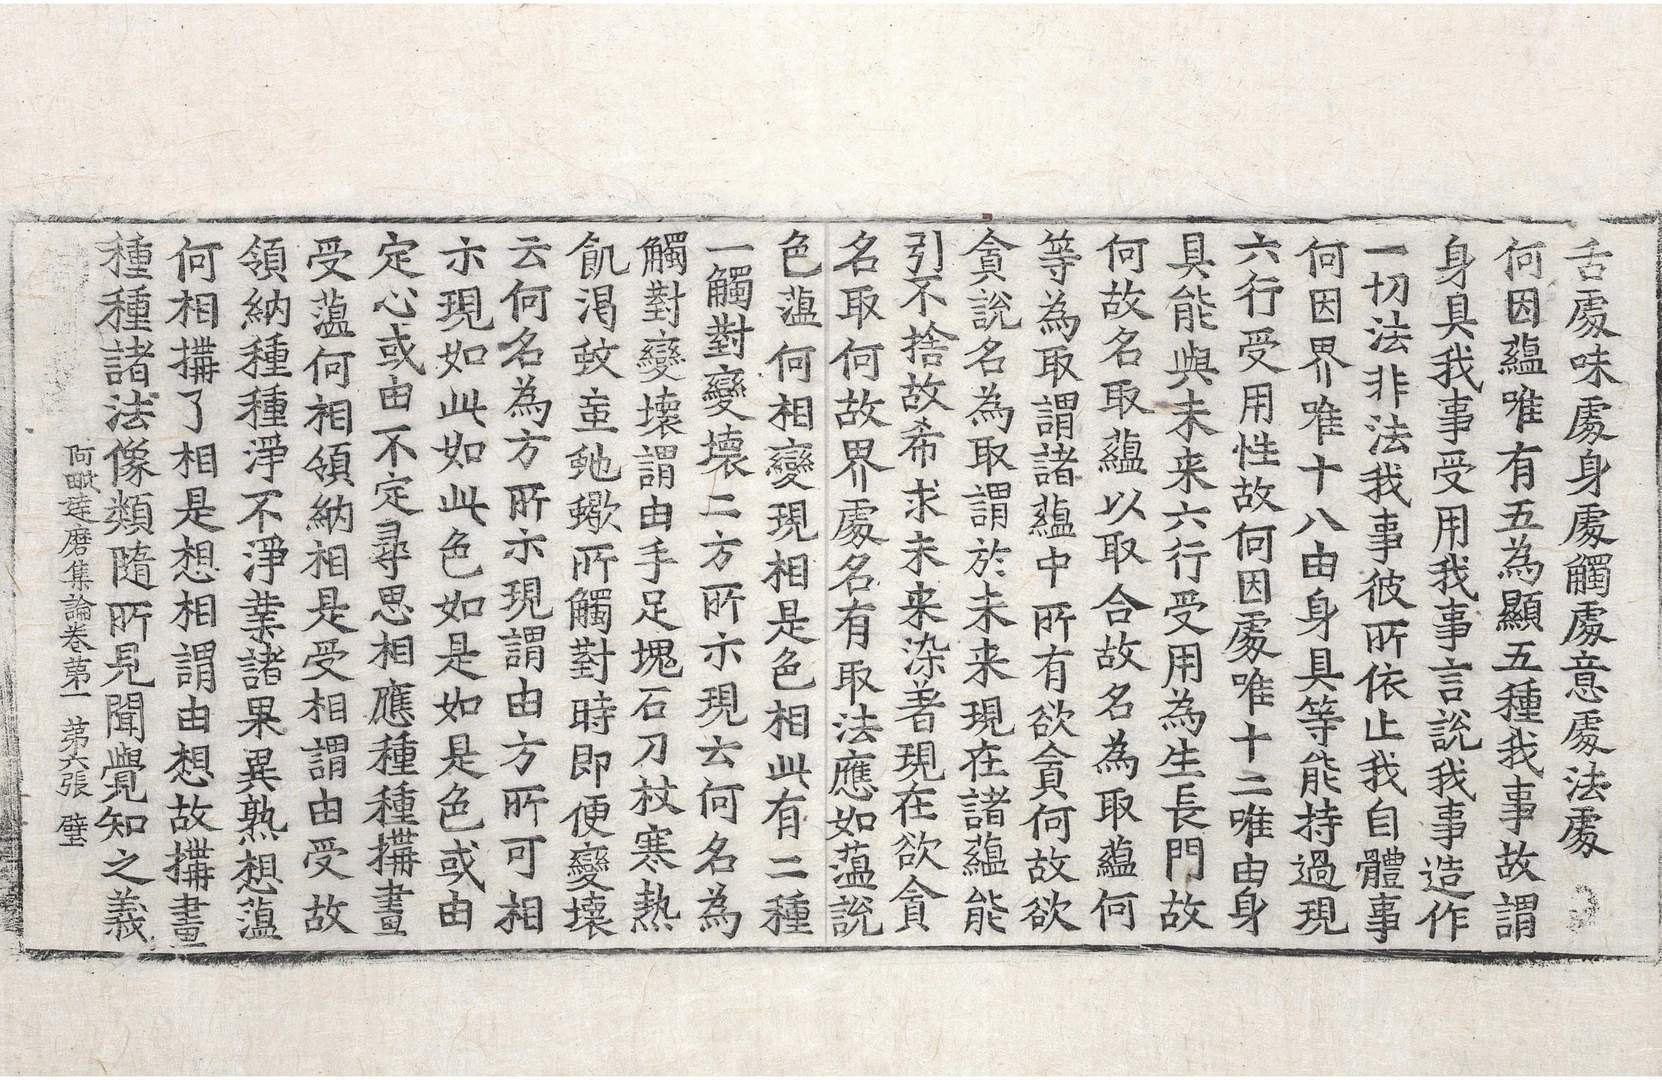 舌處味處身處觸處意處法處
何因蘊唯有五為顯五種我事故謂
身具我事受用我事言說我事造作
一切法非法我事彼所依止我自體事
何因界唯十八由身具等能持過現
六行受用性故何因處唯十二唯由身
具能與未来六行受用為生長門故
何故名取蘊以取合故名為取蘊何
等為取謂諸蘊中所有欲貪何故欲
貪說名為取謂於未来現在諸蘊能
引不捨故希求未来染著現在欲貪
名取何故界處名有取法應如蕰說
色蕰何相變現相是色相此有二種
一觸對變壞二方所示現云何名為
觸對變壞謂由手足塊石刀杖寒熱
飢渴蚊䖟虵蠍所觸對時即便變壞
云何名為方所示現謂由方所可相
示現如此如此色如是如是色或由
定心或由不定尋思相應種種搆畫
受蕰何相領納相是受相謂由受故
領納種種淨不淨業諸果異熟想蕰
何相搆了相是想相謂由想故搆畫
種種諸法像類隨所見聞覺知之義
阿毗達磨集論卷第一 第六張 璧